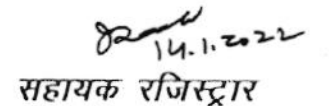 14.1.2022
सहायक रजिस्ट्रार